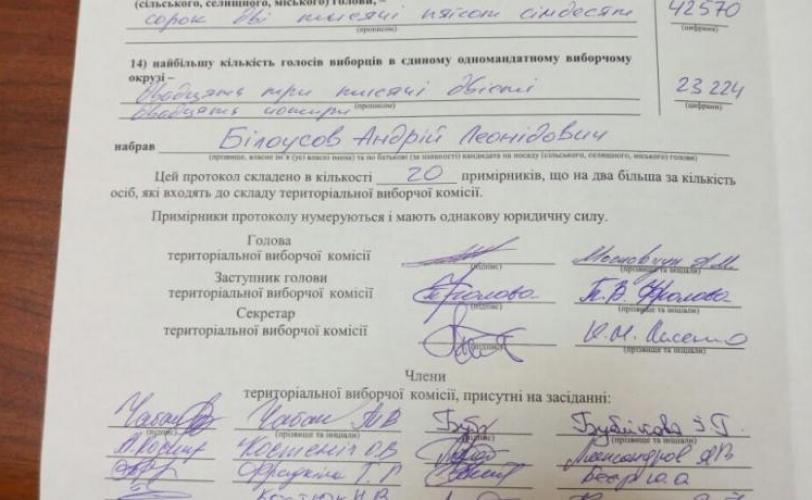 (сільського, селищного, міського) голови, –
сорок дві тисячі п'ятсот сімдесят 42570
(прописом) (цифрами)
14) найбільшу кількість голосів виборців в єдиному одномандатному виборчому
окрузі –
двадцять три тисячі двісті 23 224
двадцять чотири (прописом) (цифрами)
набрав Білоусов Андрій Леонідович
(прізвище, власне ім'я (усі власні імена) та по батькові (за наявності) кандидата на посаду (сільського, селищного, міського) голови)
Цей протокол складено в кількості 20 примірників, що на два більша за кількість
осіб, які входять до складу територіальної виборчої комісії.
Примірники протоколу нумеруються і мають однакову юридичну силу.
Голова
територіальної виборчої комісії
(підпис) (прізвище та ініціали)
Заступник голови
територіальної виборчої комісії Т.В. Фролова
(підпис) (прізвище та ініціали)
Секретар
територіальної виборчої комісії
(підпис) (прізвище та ініціали)
Члени
територіальної виборчої комісії, присутні на засіданні:
Чабан Бубнікова
(підпис) (прізвище та ініціали) (підпис) (прізвище та ініціали)
Костюк Н.В.